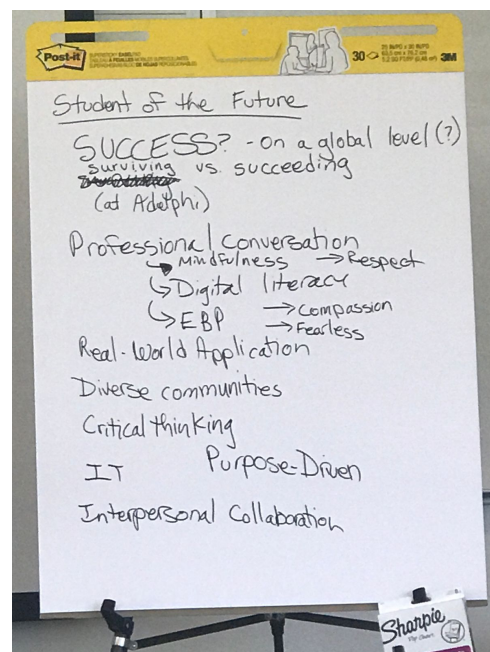 Post-it
30
3M
Student of the Future
SUCCESS? - On a global level (?)
surviving vs. succeeding
(at Adelphi)
Professional conversation
Mindfulness → Respect
Digital literacy
EBP → Compassion
→ Fearless
Real-World Application
Diverse communities
Critical thinking
IT Purpose-Driven
Interpersonal Collaboration
Sharpie